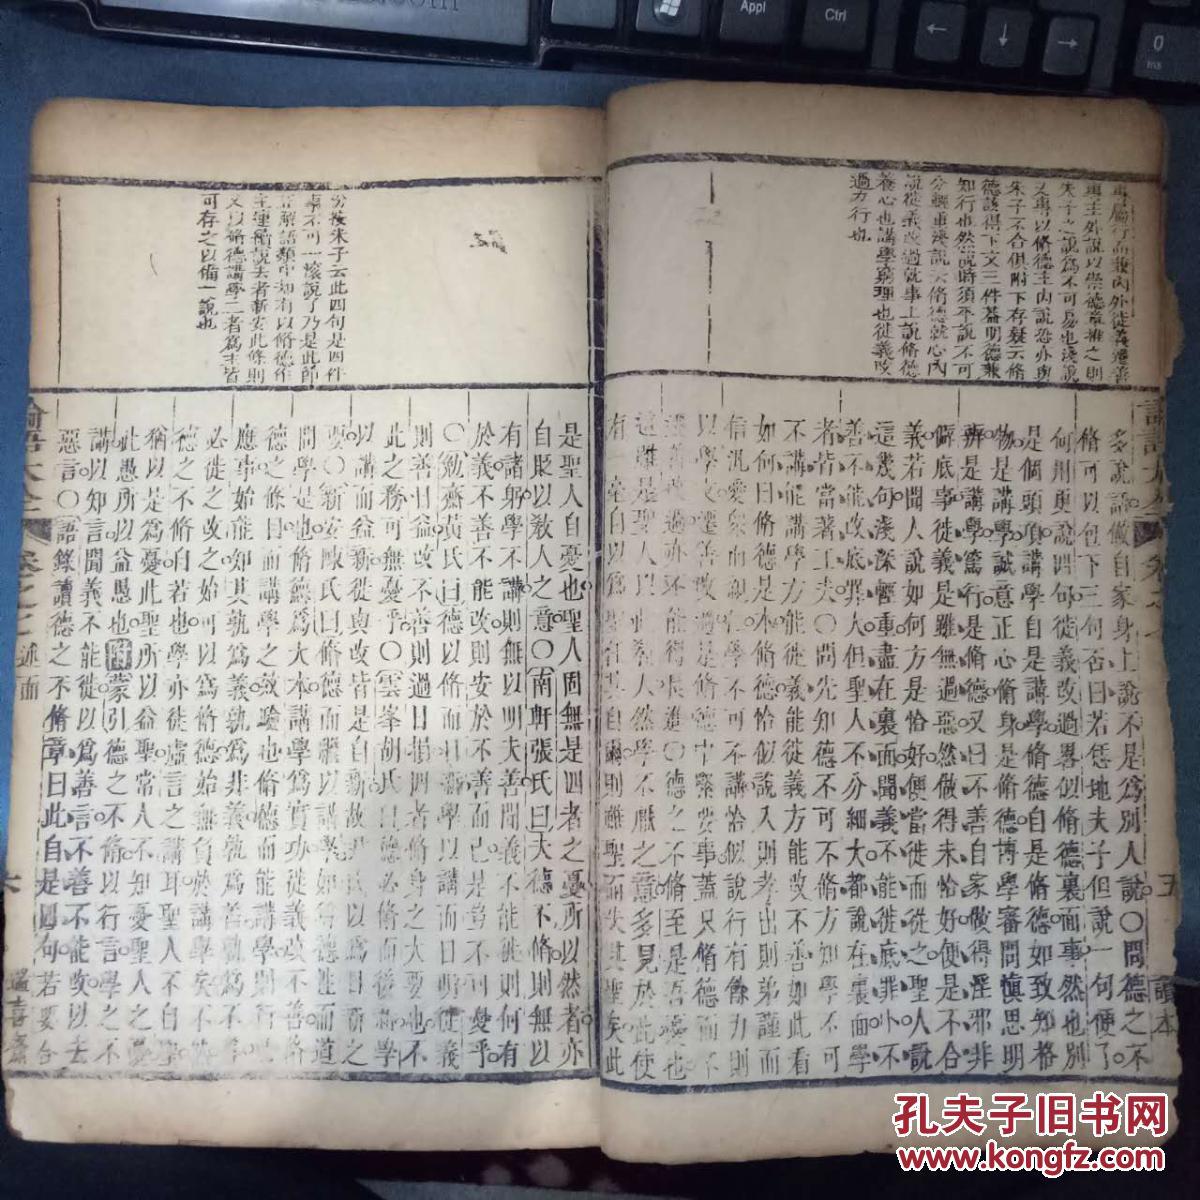 Appl
Ctrl
0
ins
再主外說以崇德章推之則
失子之說爲不可易也淺說
又專以脩德主內說恐亦與
朱子不合俱附下存疑云脩
德該得下文三件蓋明德兼
知行也然說時須平說不可
養心也講學窮理也徙義改
過力行也
多說話做自家身上說不是爲別人說〇問德之不
脩可以包下三句否曰若恁地夫子但說一句便了
何用更說四句徙義改過畧似脩德裏面事然也別
是個頭項講學自是講學脩德自是脩德如致知格
物是講學誠意正心脩身是脩德博學審問愼思明
辨是講學篤行是脩德又曰不善自家做得淫邪非
僻底事徙義是雖無過惡然做得未恰好便是不合
義若聞人說如何方是恰好便當徙而從之聖人說
這幾句淺深輕重盡在裏面聞義不能徙底罪小不
善不能改底罪大但聖人不分細大都說在裏面學
者皆當著工夫〇問先知德不可不脩方知學不可
不能講學方能徙義能徙義方能改不善如此看
如何曰脩德是本脩德恰似說入則孝出則弟謹而
信汎愛衆而親仁學不可不講恰似說行有餘力則
以學文遷善改過是脩德中緊要事蓋只脩德而不
遷善改過亦不能得長進〇德之不脩至是吾憂也
這雖是聖人以此敎人然學不厭之意多見於此使
有一毫自以爲聖任其自爾則雖聖而失其聖矣此
分按朱子云此四句是四件
事不可一滚說了乃是此節
正解語類中却有以脩德作
主運串說去者新安此條則
又以脩德講學二者爲主皆
可存之以備一說也
是聖人自憂也聖人固無是四者之憂所以然者亦
自貶以敎人之意〇南軒張氏曰夫德不脩則無以
有諸躬學不講則無以明夫善聞義不能徙則何有
於義不善不能改則安於不善而已是豈不可憂乎
〇勉齋黃氏曰德以脩而日新學以講而日明徙義
則善日益改不善則過日損四者脩身之大要也不
此之務可無憂乎〇雲峯胡氏曰德必脩而後新學
以講而益新徙與改皆是自新故尹氏以爲日新之
要〇新安陳氏曰脩德而繼以講學如尊德性而道
問學是也脩德爲大本講學爲實功徙義改不善脩
德之條目而講學之效驗也脩德而能講學則行之
應事始能知其孰爲義孰爲非義孰爲善孰爲不善
必徙之改之始可以爲脩德始無負於講學矣不然
德之不脩自若也學亦徒虛言之講耳聖人不自聖
猶以是爲憂此聖所以益聖常人不知憂聖人之憂
此愚所以益愚也附蒙引德之不脩以行言學之不
講以知言聞義不能徙以爲善言不善不能改以去
惡言〇語錄讀德之不脩章曰此自是四句若要合
論語大全
卷之七
述而
六
讀本
五
孔夫子旧书网
www.kongfz.com